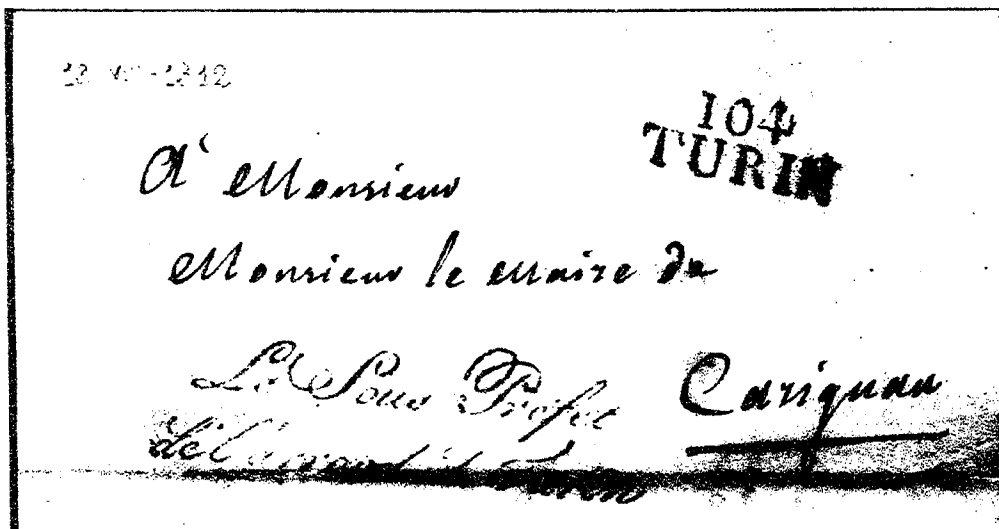 104
TURIN
A Monsieur
Monsieur le Maire de
Carignan
Le Sous Préfet
de l'arrond.t de Turin